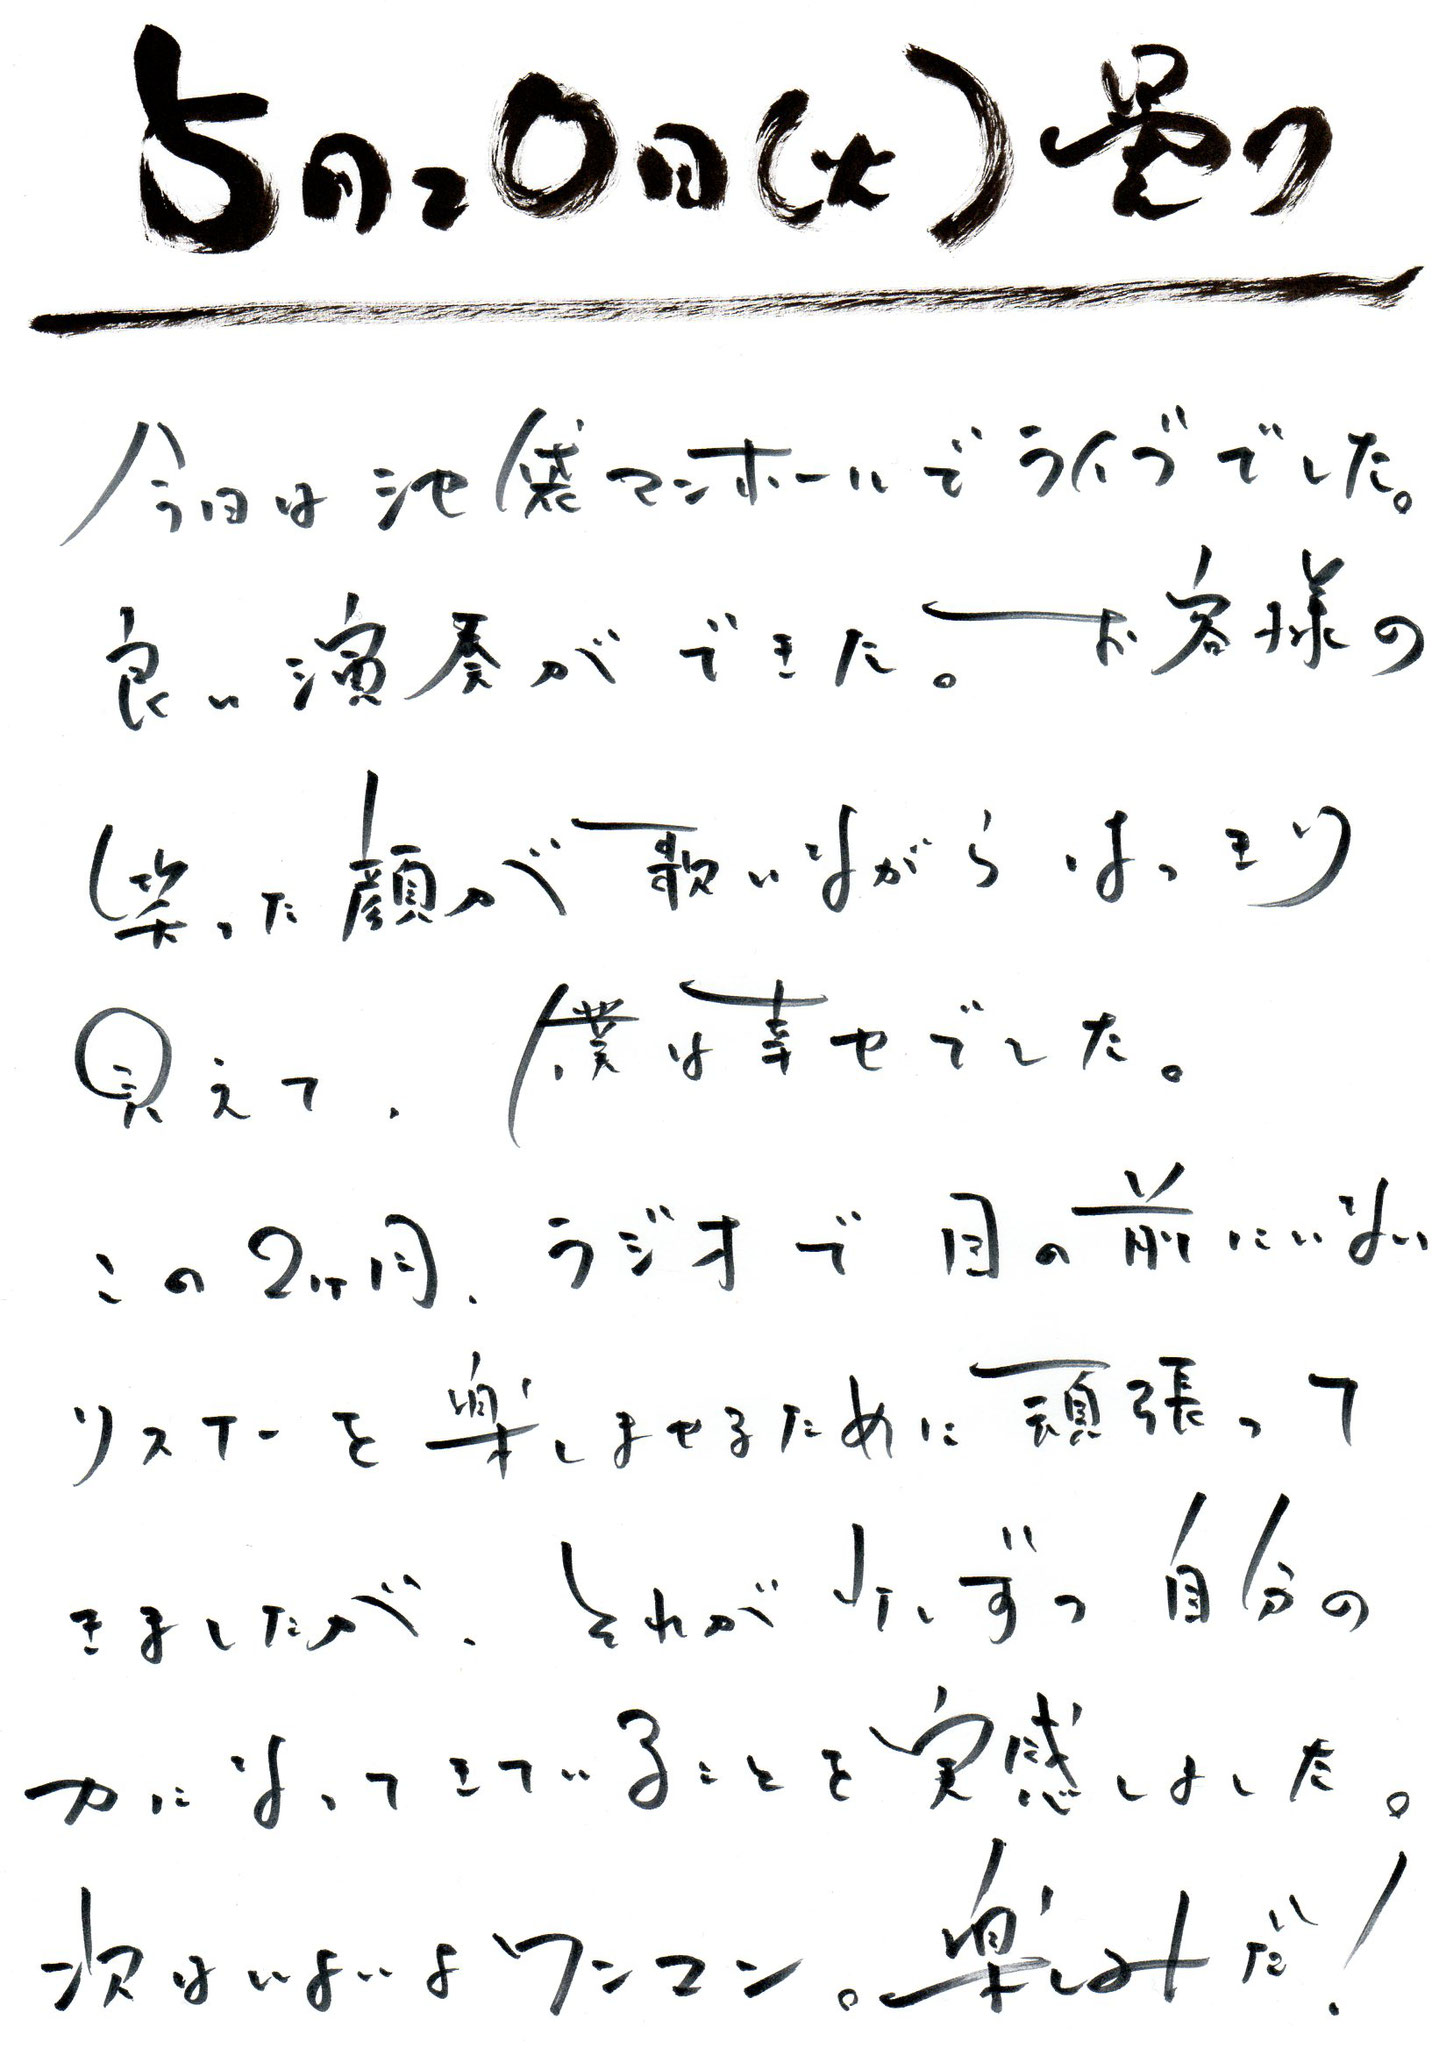 5月20日(火)曇り
今日は池袋マンホールでライブでした。
良い演奏ができた。お客様の
笑った顔が歌いながらはっきり
見えて、僕は幸せでした。
この2ヶ月、ラジオで目の前にいない
リスナーを楽しませるために頑張って
きましたが、それが少しずつ自分の
力になってきていることを実感しました。
次はいよいよワンマン。楽しみだ!